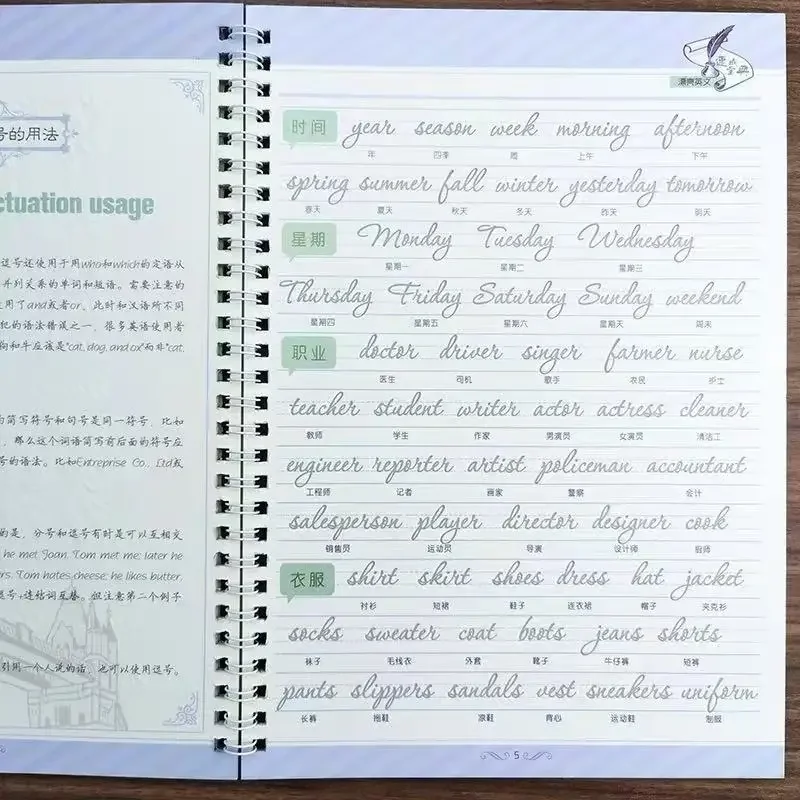 号的用法
ctuation usage
逗号还使用于用who和which的定语从
并列关系的单词和短语。需要注意的
用了and或者or，此时和汉语所不同
犯的语法错误之一，很多英语使用者
狗和牛应该是"cat, dog, and ox"而非"cat,
的简写符号和句号是同一符号，比如
，那么这个词语简写前后面的符号应
号的语法。比如Entreprise Co., Ltd或
的是，分号和逗号有时是可以互相交
he met Joan. Tom met me; later he
rs. Tom hates cheese; he likes butter.
逗号+连结词互替。但注意第二个例子
引用一个人说的话，也可以使用逗号。
漂亮英文
时间 year season week morning afternoon
年 四季 周 上午 下午
spring summer fall winter yesterday tomorrow
春天 夏天 秋天 冬天 昨天 明天
星期 Monday Tuesday Wednesday
星期一 星期二 星期三
Thursday Friday Saturday Sunday weekend
星期四 星期五 星期六 星期天 周末
职业 doctor driver singer farmer nurse
医生 司机 歌手 农民 护士
teacher student writer actor actress cleaner
教师 学生 作家 男演员 女演员 清洁工
engineer reporter artist policeman accountant
工程师 记者 画家 警察 会计
salesperson player director designer cook
销售员 运动员 导演 设计师 厨师
衣服 shirt skirt shoes dress hat jacket
衬衫 短裙 鞋子 连衣裙 帽子 夹克衫
socks sweater coat boots jeans shorts
袜子 毛线衣 外套 靴子 牛仔裤 短裤
pants slippers sandals vest sneakers uniform
长裤 拖鞋 凉鞋 背心 运动鞋 制服
5